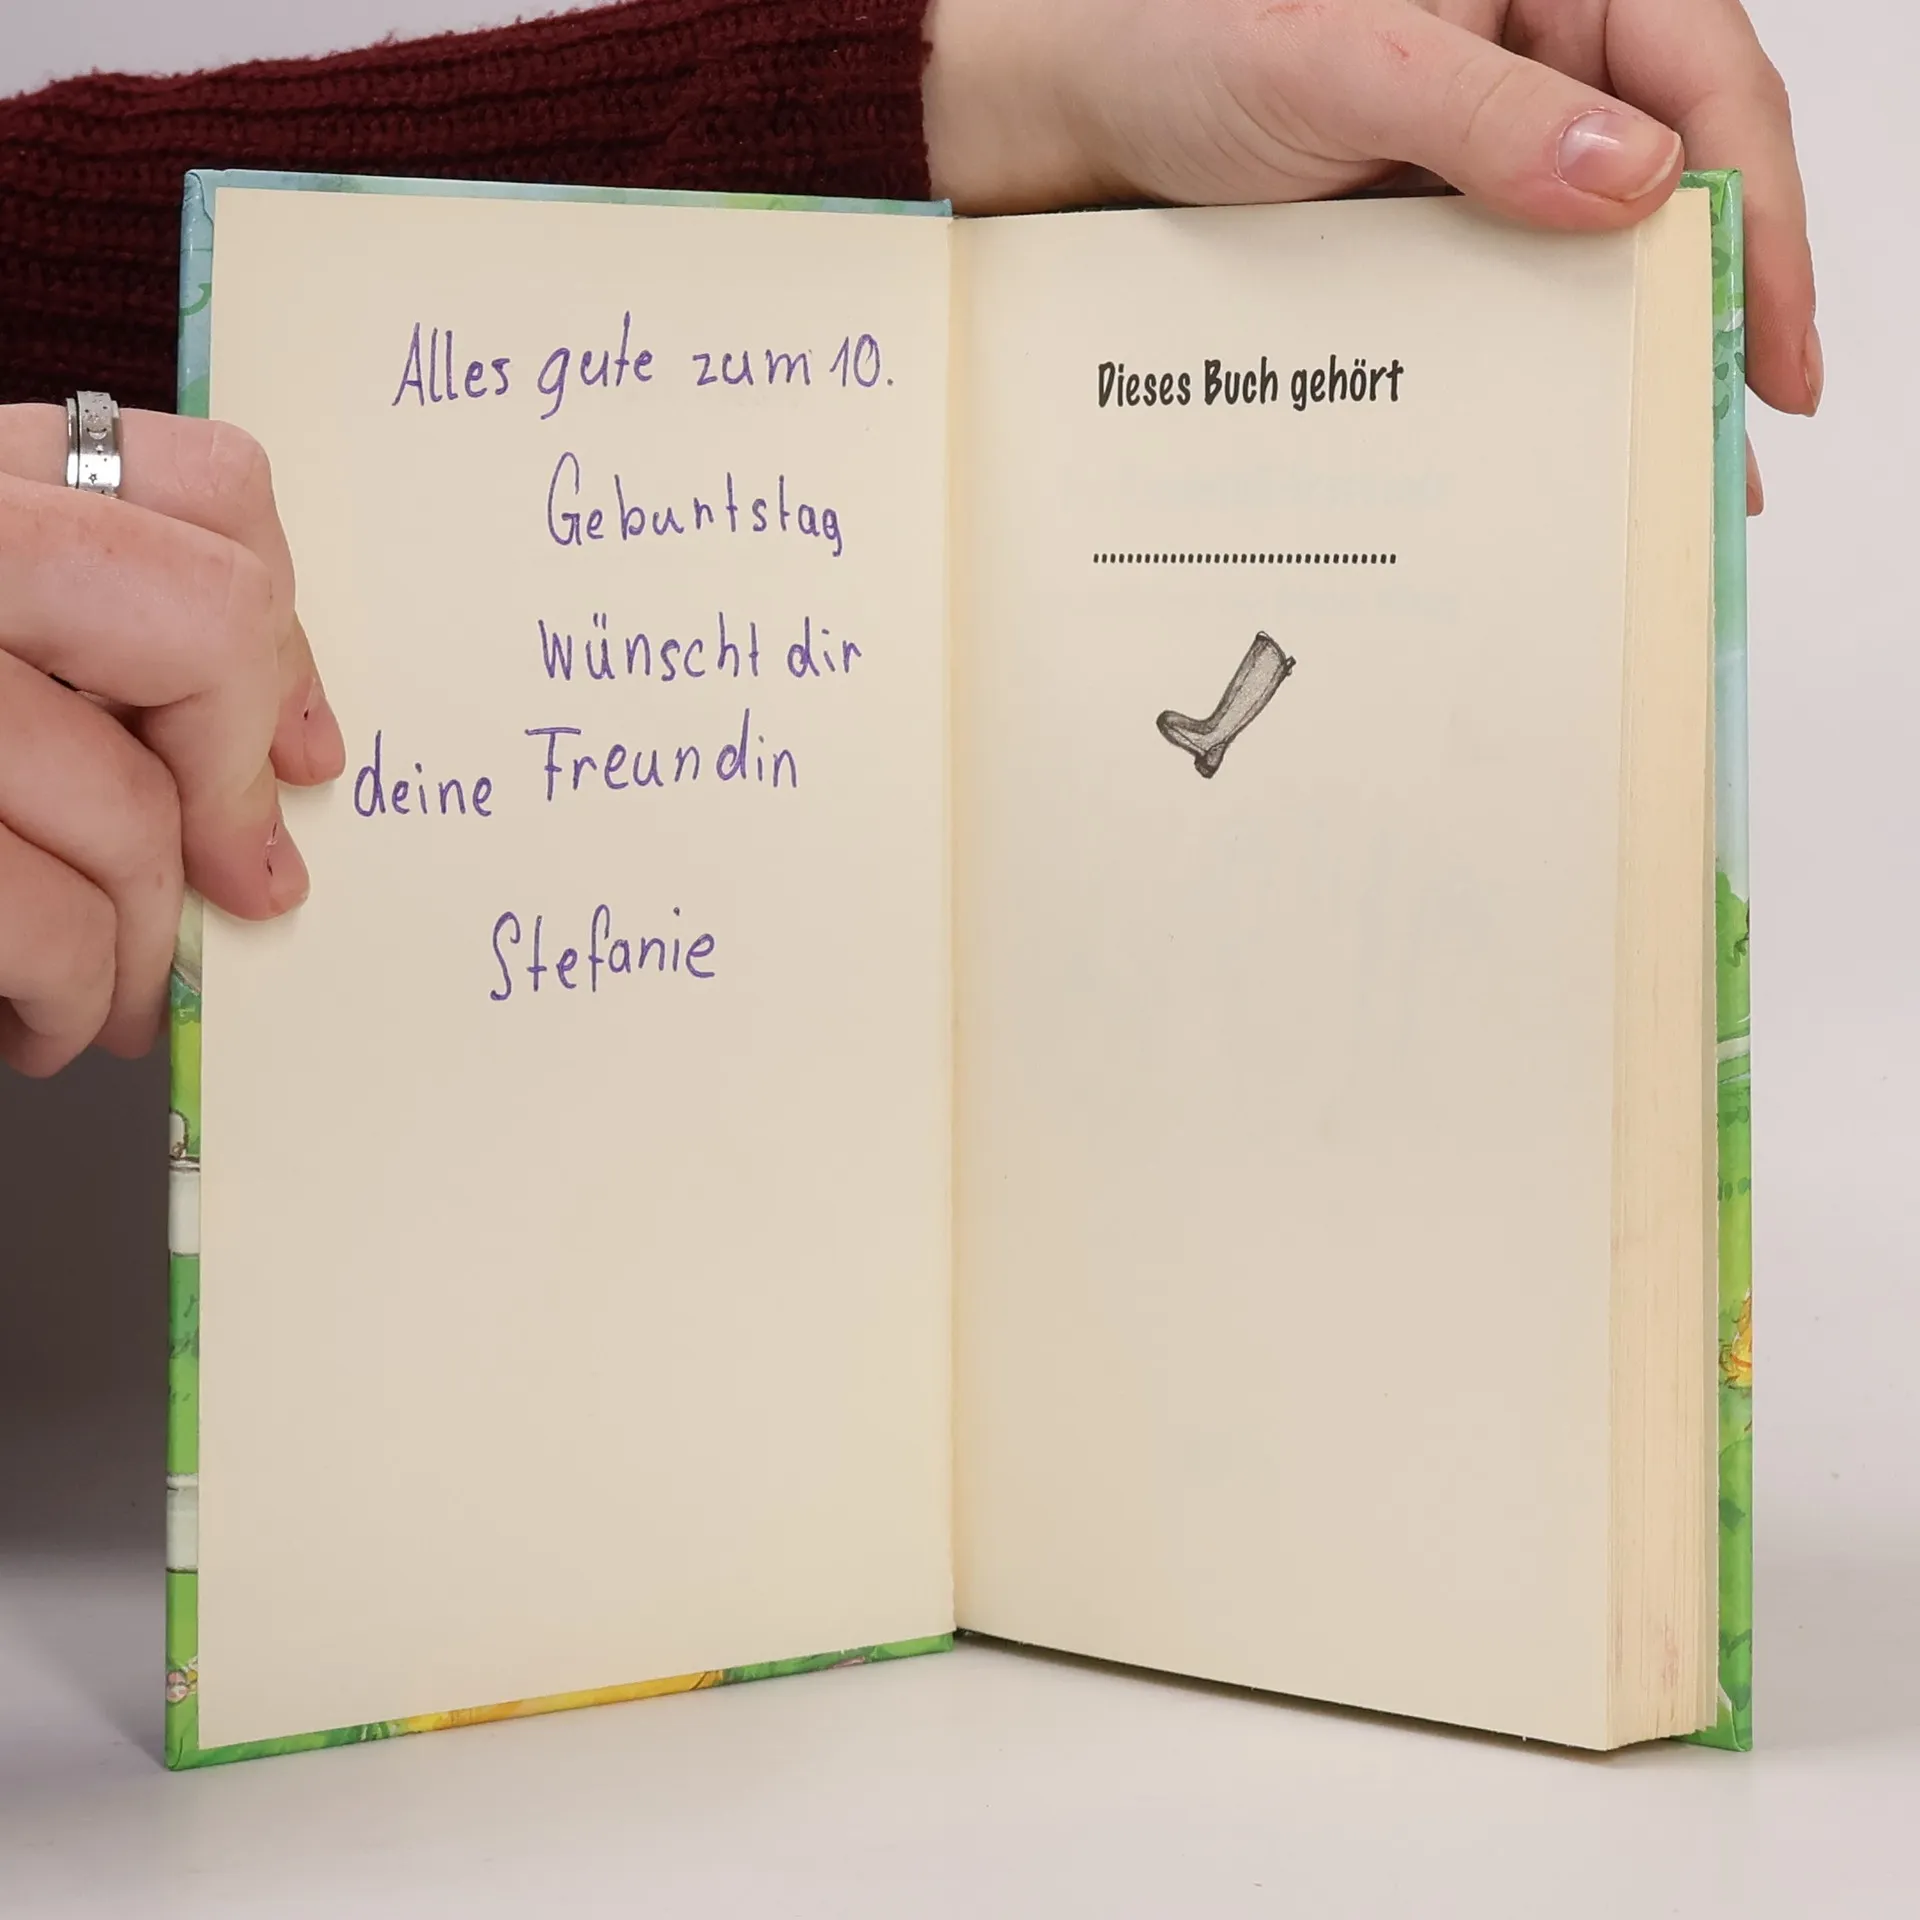 Alles gute zum 10.
Geburtstag
wünscht dir
deine Freundin
Stefanie
Dieses Buch gehört
....................................